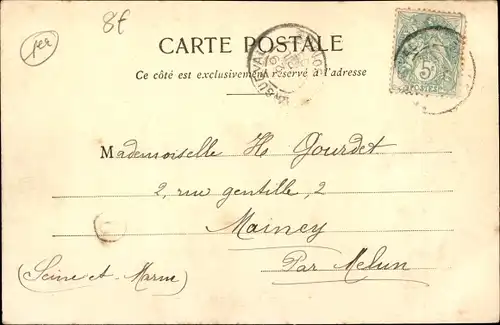 per 8f
CARTE POSTALE
Ce côté est exclusivement réservé à l'adresse
5c
POSTES
Mademoiselle H Gourdet
2, rue gentille, 2
Maincy
(Seine et Marne) Par Melun